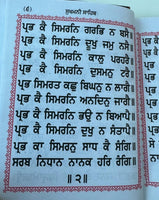 (੯) ਸੁਖਮਨੀ ਸਾਹਿਬ
ਪ੍ਰਭ ਕੈ ਸਿਮਰਨਿ ਗਰਭਿ ਨ ਬਸੈ
ਪ੍ਰਭ ਕੈ ਸਿਮਰਨਿ ਦੂਖੁ ਜਮੁ ਨਸੈ
ਪ੍ਰਭ ਕੈ ਸਿਮਰਨਿ ਕਾਲੁ ਪਰਹਰੈ
ਪ੍ਰਭ ਕੈ ਸਿਮਰਨਿ ਦੁਸਮਨੁ ਟਰੈ
ਪ੍ਰਭ ਸਿਮਰਤ ਕਛੁ ਬਿਘਨੁ ਨ ਲਾਗੈ
ਪ੍ਰਭ ਕੈ ਸਿਮਰਨਿ ਅਨਦਿਨੁ ਜਾਗੈ
ਪ੍ਰਭ ਕੈ ਸਿਮਰਨਿ ਭਉ ਨ ਬਿਆਪੈ
ਪ੍ਰਭ ਕੈ ਸਿਮਰਨਿ ਦੁਖੁ ਨ ਸੰਤਾਪੈ
ਪ੍ਰਭ ਕਾ ਸਿਮਰਨੁ ਸਾਧ ਕੈ ਸੰਗਿ
ਸਰਬ ਨਿਧਾਨ ਨਾਨਕ ਹਰਿ ਰੰਗਿ
॥੨॥